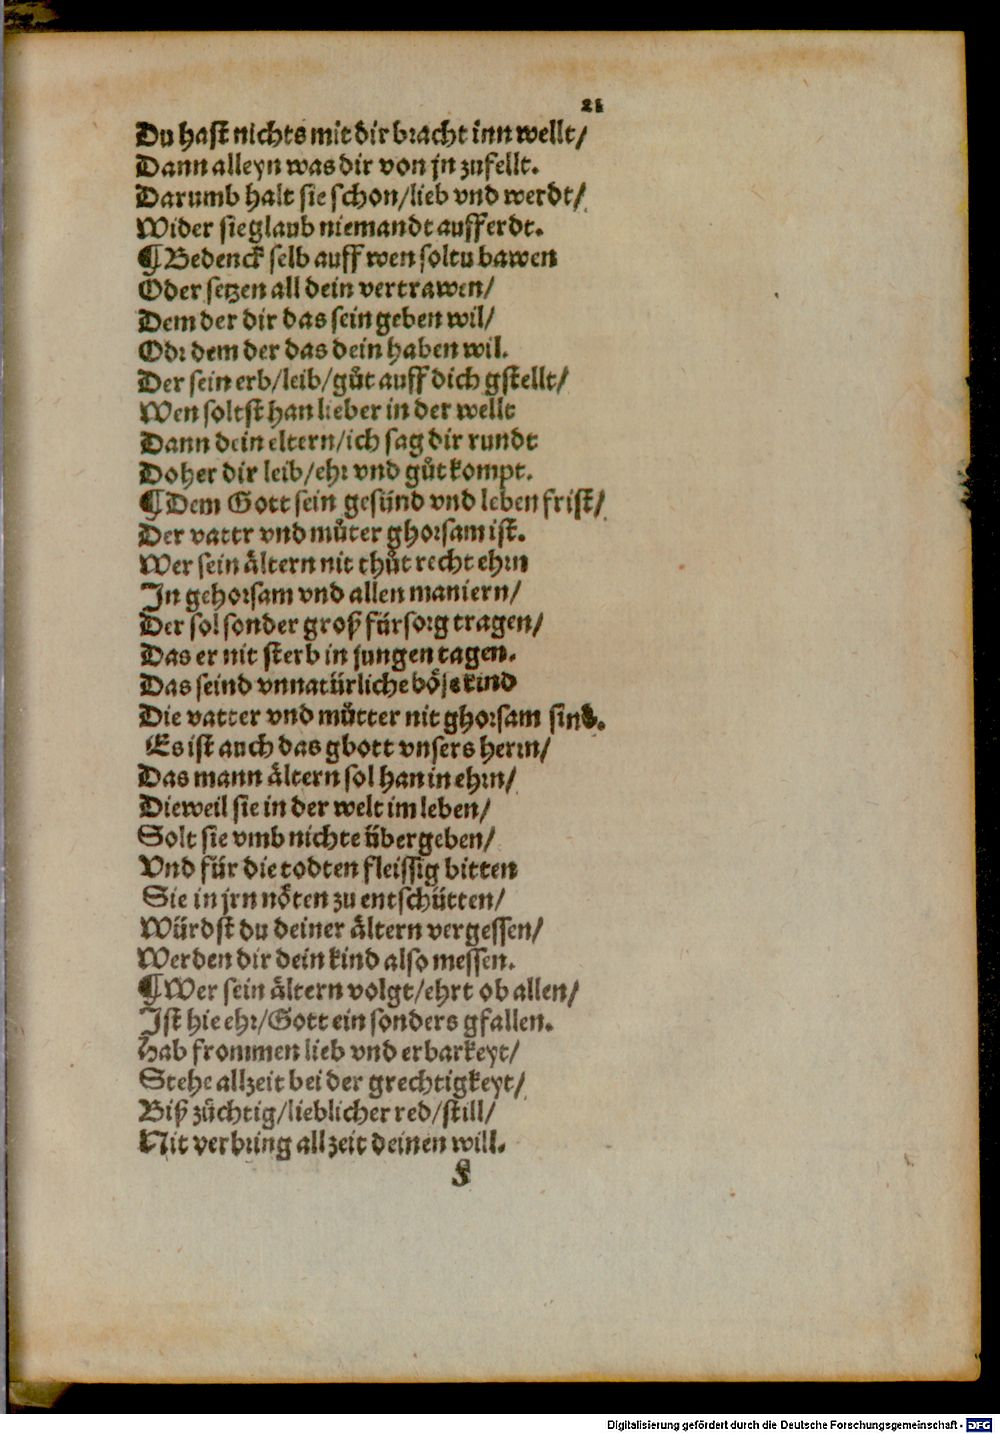 21
Du hast nichts mit dir bracht inn wellt/
Dann alleyn was dir von jn zufellt.
Darumb halt sie schon/lieb vnd werdt/
Wider sie glaub niemandt auff erdt.
¶ Bedenck selb auff wen soltu bawen
Oder setzen all dein vertrawen/
Dem der dir das sein geben wil/
Odr dem der das dein haben wil.
Der sein erb/leib/gůt auff dich gstellt/
Wen soltst han lieber in der wellt
Dann dein eltern/ich sag dir rundt
Doher dir leib/ehr vnd gůt kompt.
¶ Dem Gott sein gesünd vnd leben frist/
Der vattr vnd můter ghorsam ist.
Wer sein ältern nit thůt recht ehrn
In gehorsam vnd allen maniern/
Der sol sonder groß fürsorg tragen/
Das er nit sterb in jungen tagen.
Das seind vnnatürliche böse kind
Die vatter vnd můtter nit ghorsam sind.
Es ist auch das gbott vnsers herrn/
Das mann ältern sol han in ehrn/
Dieweil sie in der welt im leben/
Solt sie vmb nichte übergeben/
Vnd für die todten fleissig bitten
Sie in jrn nöten zu entschütten/
Würdst du deiner ältern vergessen/
Werden dir dein kind also messen.
¶ Wer sein ältern volgt/ehrt ob allen/
Ist hie ehr/Gott ein sonders gfallen.
Hab frommen lieb vnd erbarkeyt/
Stehe allzeit bei der grechtigkeyt/
Biß züchtig/lieblicher red/still/
Nit verbring allzeit deinen will.
F
Digitalisierung gefördert durch die Deutsche Forschungsgemeinschaft - DFG